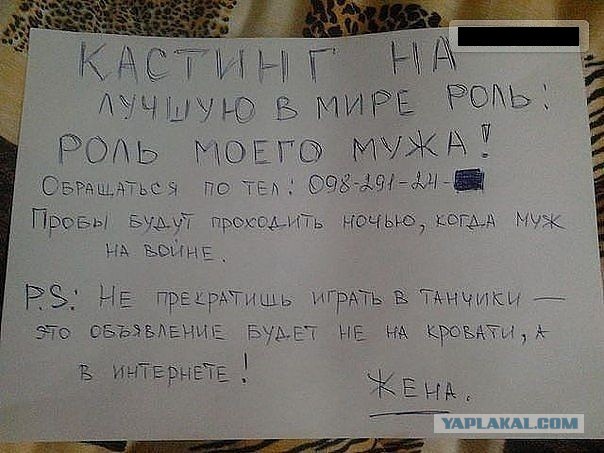 КАСТИНГ НА
ЛУЧШУЮ В МИРЕ РОЛЬ:
РОЛЬ МОЕГО МУЖА!
ОБРАЩАТЬСЯ ПО ТЕЛ: 098-291-24-
ПРОБЫ БУДУТ ПРОХОДИТЬ НОЧЬЮ, КОГДА МУЖ
НА ВОЙНЕ.
P.S: НЕ ПРЕКРАТИШЬ ИГРАТЬ В ТАНЧИКИ —
ЭТО ОБЪЯВЛЕНИЕ БУДЕТ НЕ НА КРОВАТИ, А
В ИНТЕРНЕТЕ!
ЖЕНА.
YAPLAKAL.COM